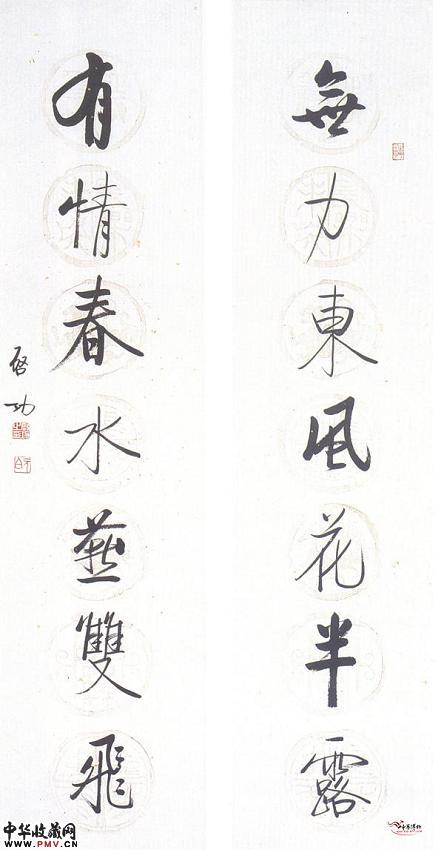 無力東風花半露
有情春水燕雙飛
啓功
中华收藏网
www.PMV.CN